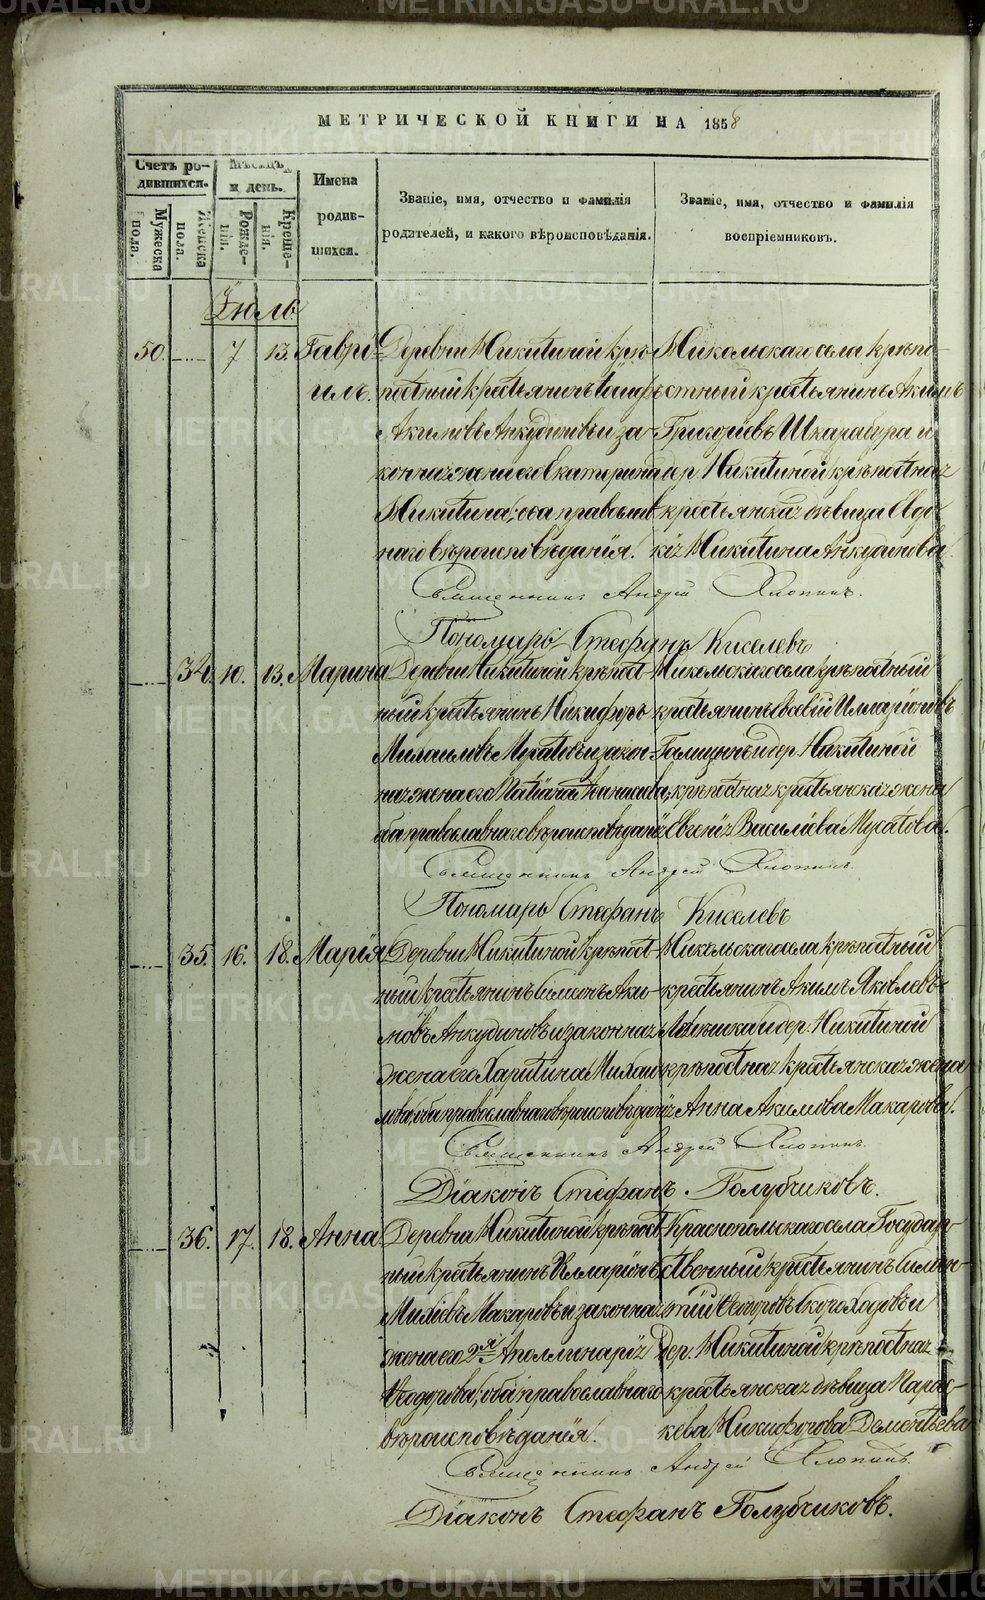 МЕТРИЧЕСКОЙ КНИГИ НА 1858
Счетъ ро-
дившихся.
Мужеска
пола.
Женска
пола.
Мѣсяцъ
и день.
Рожде-
нія.
Креще-
нія.
Имена
родив-
шихся.
Званіе, имя, отчество и фамилія
родителей, и какого вѣроисповѣданія.
Званіе, имя, отчество и фамилія
воспріемниковъ.
Іюль
50. 7 13. Гаврі-
илъ.
Деревни Никитиной крѣ-
постный крестьянинъ
Акимовъ Анкудиновъ и за-
конная жена его Екатерина
Никитина, оба православ-
наго вѣроисповѣданія.
Никольскаго села крѣпо-
стный крестьянинъ Акимъ
Григорьевъ и
дер. Никитиной крѣпостная
крестьянская дѣвица Евдо-
кія Никитина Анкудинова
Священникъ Андрей Хлопинъ.
Пономарь Стефанъ Киселевъ
34. 10. 13. Марина
Деревни Никитиной крѣпост-
ный крестьянинъ Никифоръ
Михаиловъ Мусатовъ и закон-
ная жена его
оба православнаго вѣроисповѣданія
Никольскаго села крѣпостный
крестьянинъ Илларіоновъ
Галицынъ и дер. Никитиной
крѣпостная крестьянская жена
Евгенія Василіева Мусатова.
Священникъ Андрей Хлопинъ.
Пономарь Стефанъ Киселевъ
35. 16. 18. Марія
Деревни Никитиной крѣпост-
ный крестьянинъ Симеонъ Аки-
мовъ Анкудиновъ и законная
жена его Харитина Михаи-
лова, оба православнаго вѣроисповѣданія
Никольскаго села крѣпостный
крестьянинъ Акимъ Яковлевъ
и дер. Никитиной
крѣпостная крестьянская жена
Анна Акимова Макарова.
Священникъ Андрей Хлопинъ.
Діаконъ Стефанъ Голубчиковъ.
36. 17. 18. Анна
Деревни Никитиной крѣпост-
ный крестьянинъ Илларіонъ
Макаровъ и законная
жена его 2я Аполлинарія
Ѳеодорова, оба православнаго
вѣроисповѣданія.
Краснопольскаго села Государ-
ственный крестьянинъ
Скороходовъ и
дер. Никитиной крѣпостная
крестьянская дѣвица Парас-
кева Никифорова Дементьева
Священникъ Андрей Хлопинъ.
Діаконъ Стефанъ Голубчиковъ.
METRIKI.GASO-URAL.RU